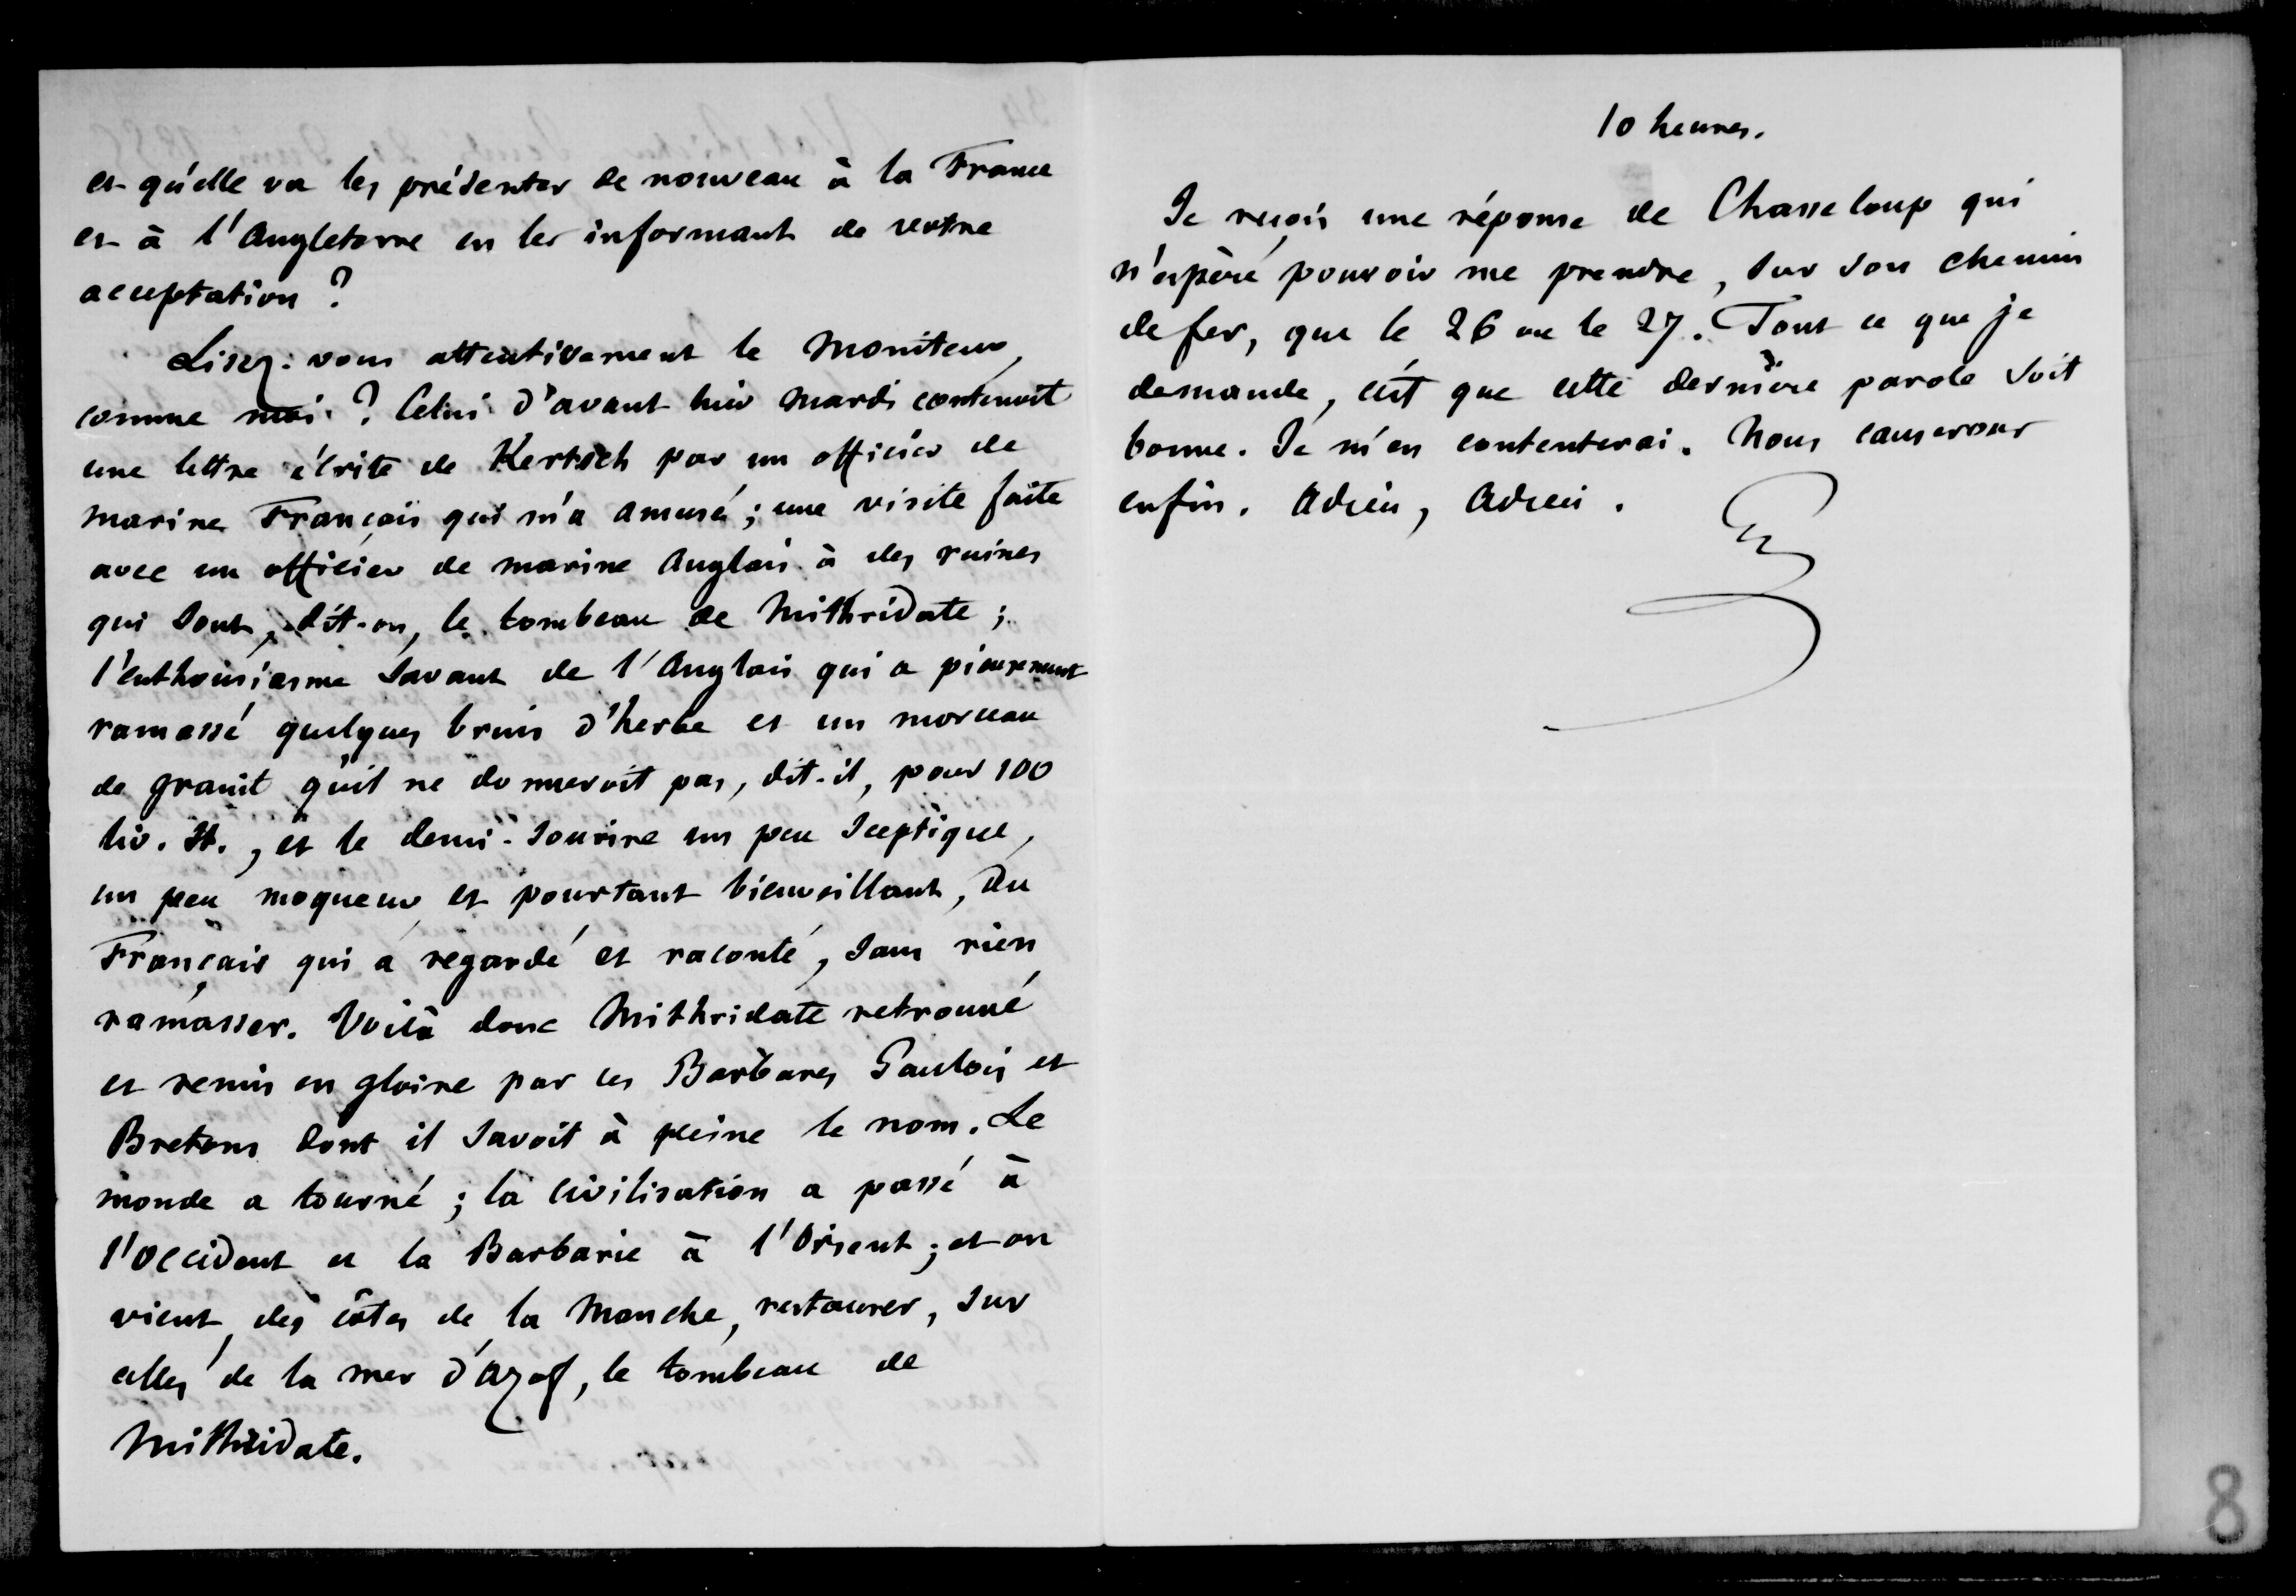 et qu'elle va les présenter de nouveau à la France
et à l'Angleterre en les informant de votre
acceptation ?
Lisez-vous attentivement le Moniteur,
comme moi ? Celui d'avant hier Mardi contenoit
une lettre écrite de Kertsch par un officier de
marine Français qui m'a amusé ; une visite faite
avec un officier de marine Anglais à des ruines
qui sont, dit-on, le tombeau de Mithridate ;
l'enthousiasme savant de l'Anglais qui a pieusement
ramassé quelques brins d'herbe et un morceau
de granit qu'il ne donneroit pas, dit-il, pour 100
liv. St., et le demi-sourire un peu sceptique,
un peu moqueur et pourtant bienveillant, du
Français qui a regardé et raconté, sans rien
ramasser. Voilà donc Mithridate retrouvé
et remis en gloire par les Barbares Gaulois et
Bretons dont il savoit à peine le nom. Le
monde a tourné ; la civilisation a passé à
l'Occident et la Barbarie à l'Orient ; et on
vient, des côtes de la Manche, restaurer, sur
celles de la mer d'Azof, le tombeau de
Mithridate.
10 heures.
Je reçois une réponse de Chasseloup qui
n'espère pouvoir me prendre, sur son chemin
de fer, que le 26 ou le 27. Tout ce que je
demande, c'est que cette dernière parole soit
bonne. Je m'en contenterai. Nous causerons
enfin. Adieu, Adieu.
8